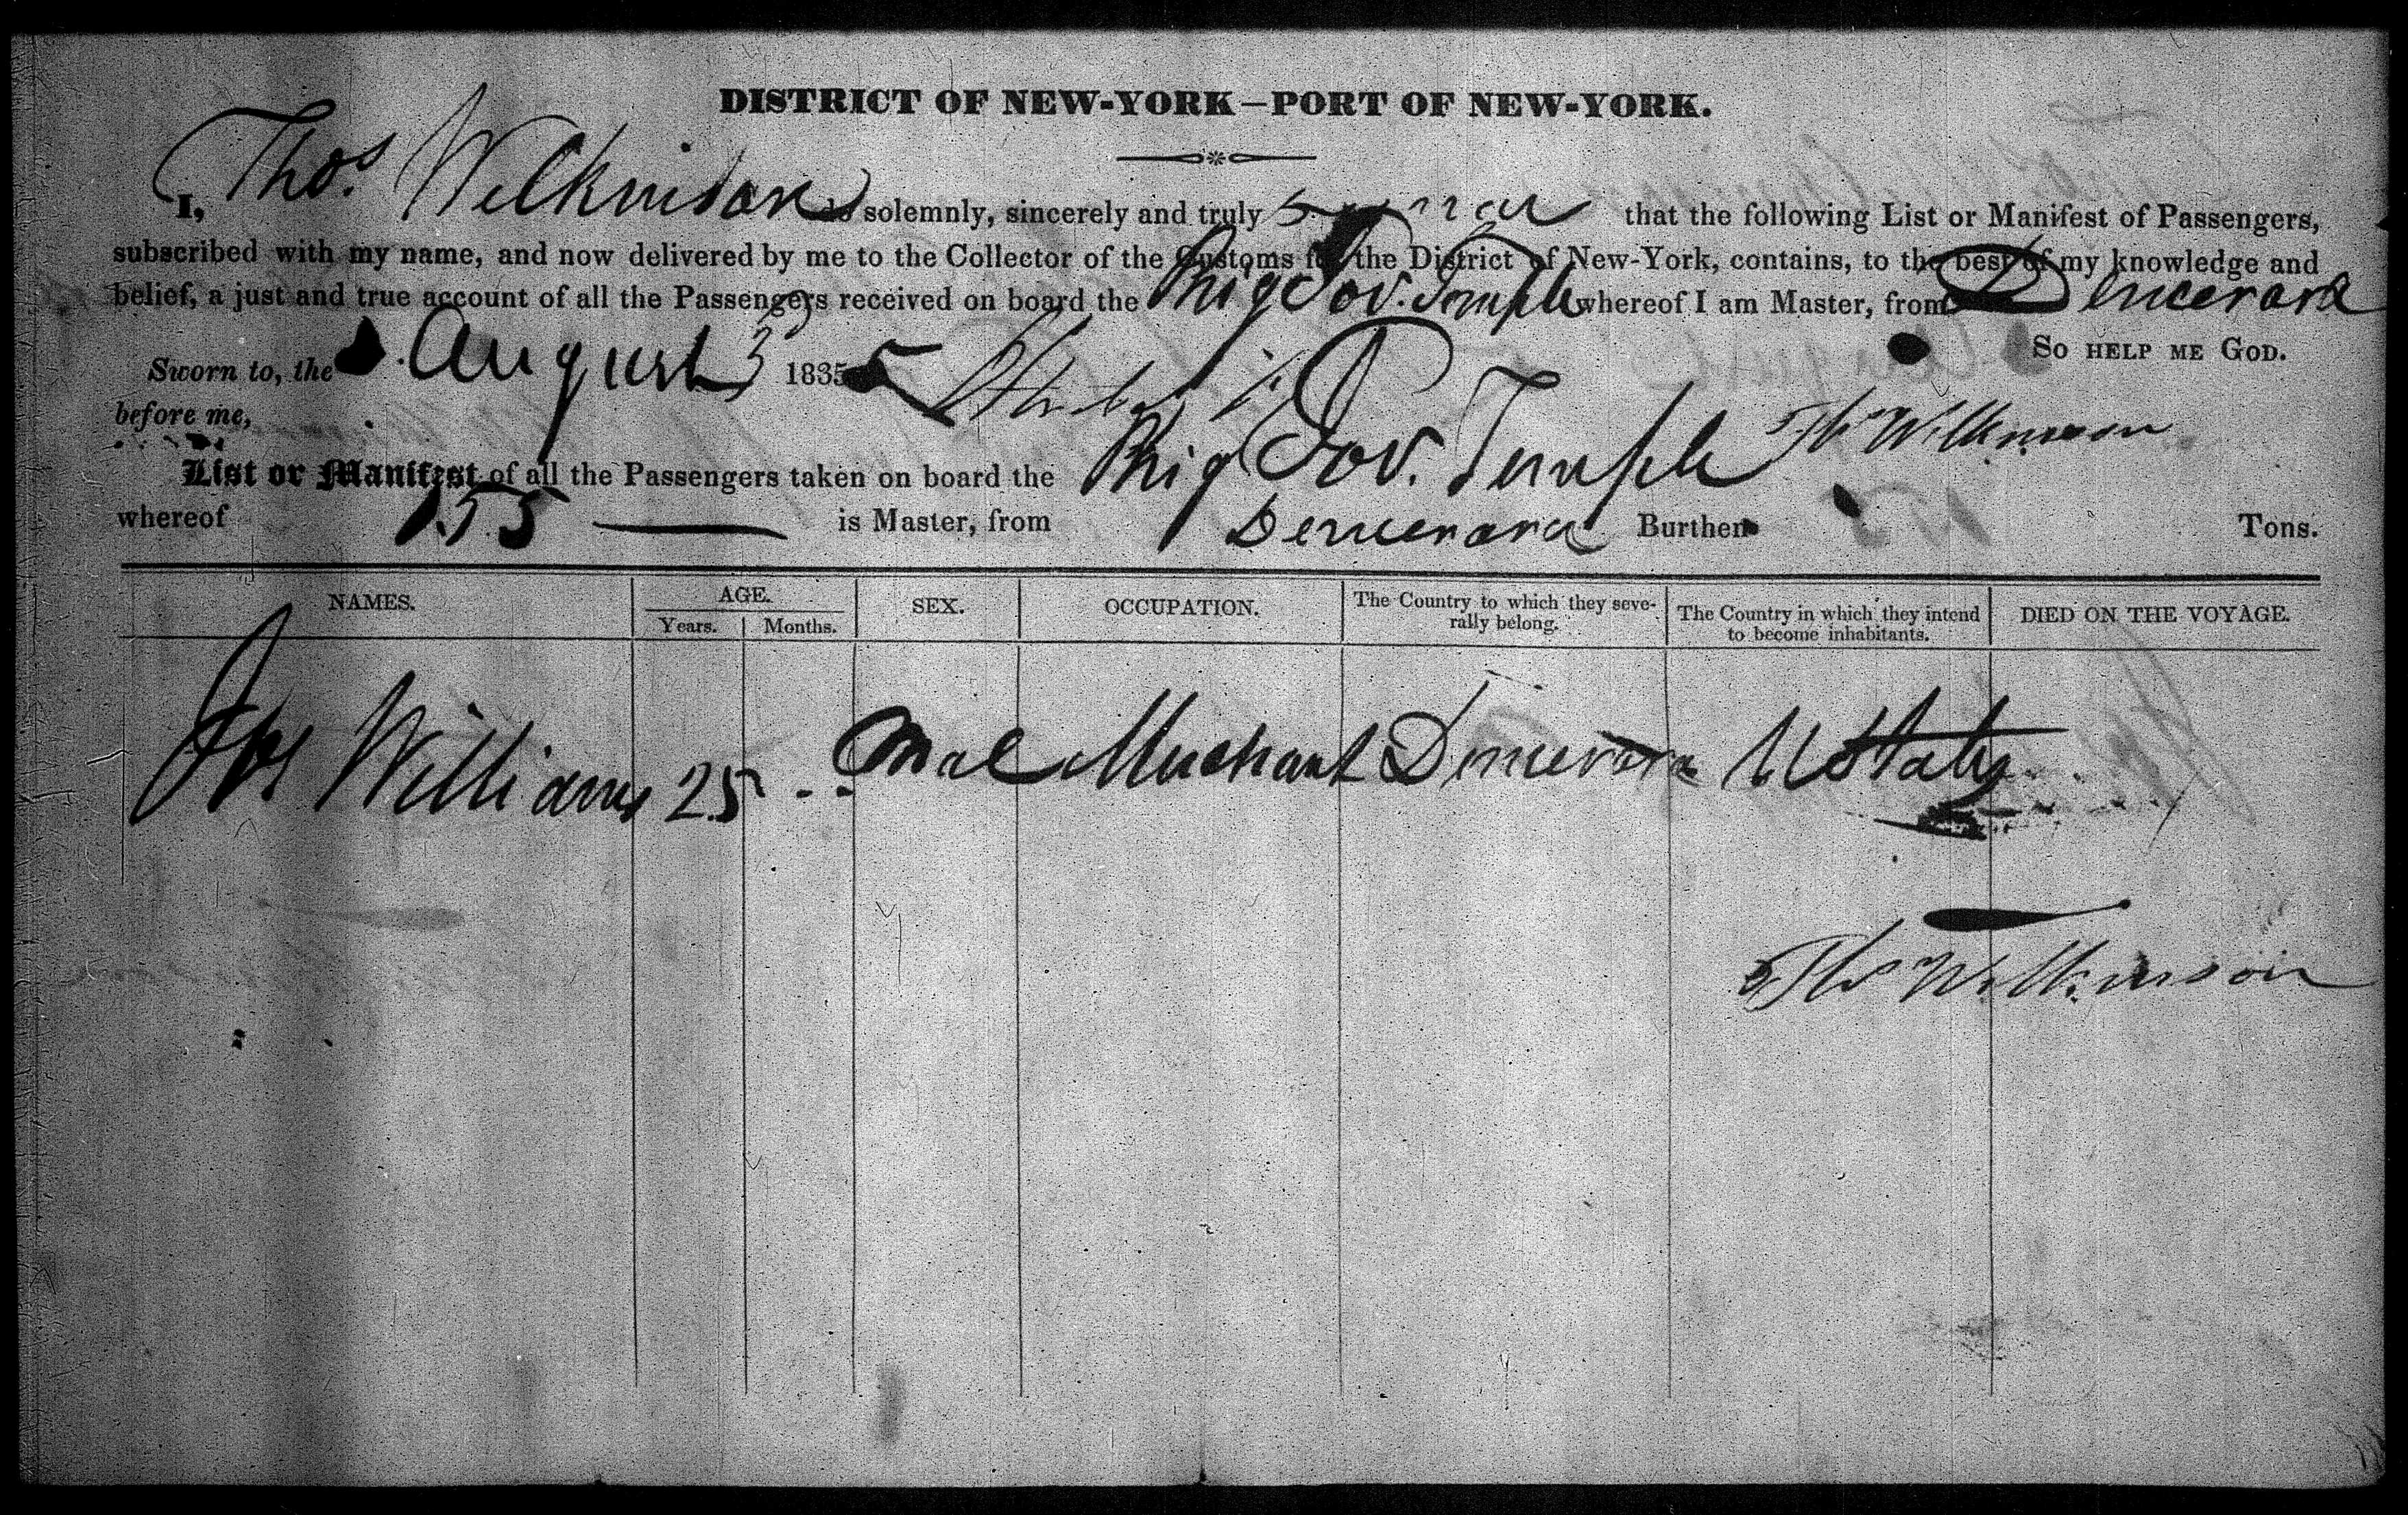 DISTRICT OF NEW-YORK—PORT OF NEW-YORK.
I, Thos. Wilkinson do solemnly, sincerely and truly swear that the following List or Manifest of Passengers,
subscribed with my name, and now delivered by me to the Collector of the Customs for the District of New-York, contains, to the best of my knowledge and
belief, a just and true account of all the Passengers received on board the Brig Gov. Temple whereof I am Master, from Demerara
So HELP ME GOD.
Sworn to, the August 3 1835
before me,
Thos Wilkinson
List or Manifest of all the Passengers taken on board the Brig Gov. Temple
whereof 155 is Master, from Demerara Burthen Tons.
NAMES. AGE. SEX. OCCUPATION. The Country to which they seve- The Country in which they intend DIED ON THE VOYAGE.
Years. Months. rally belong. to become inhabitants.
Jos Williams 25 Male Merchant Demerara U States
Thos Wilkinson